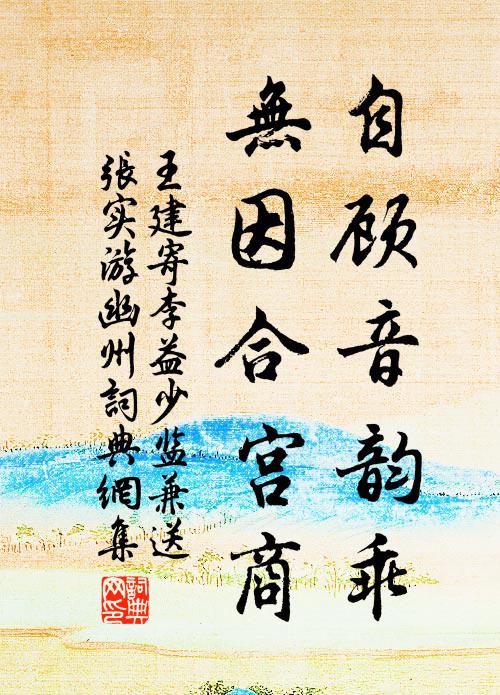 自顾音韵乖
無因合宫商
王建寄李益少监兼送
張实游幽州詞典網集
詞典